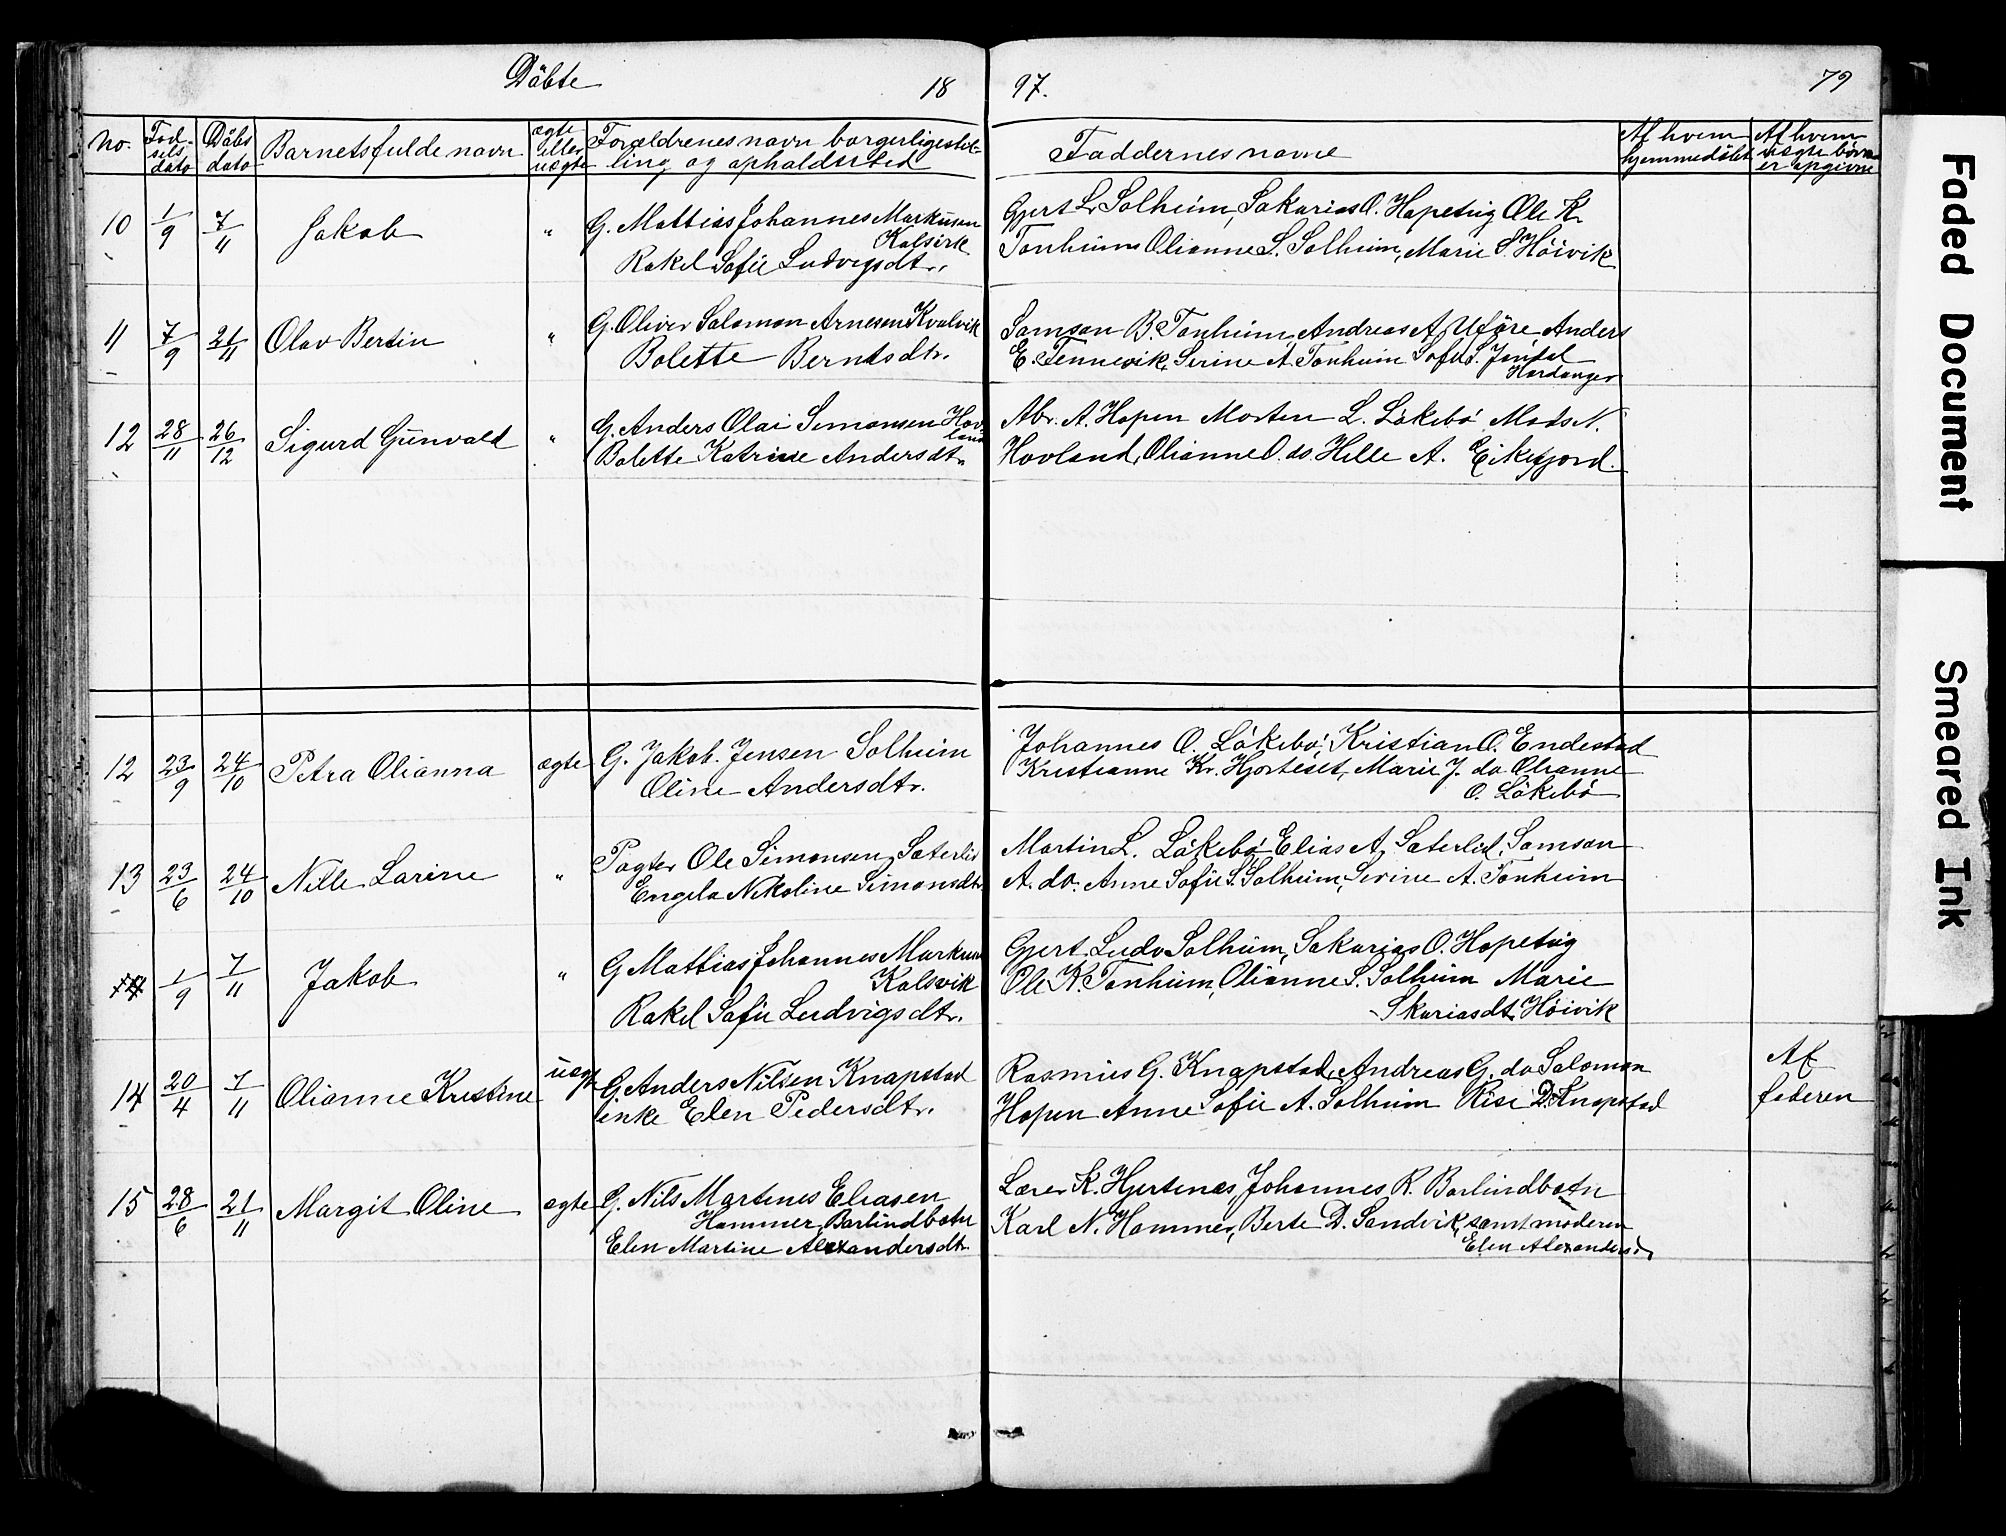 Döbte 18 97. 79
No. Fød-sels dato Döbs dato Barnets fulde navn ægte eller uægte Forældrenes navn borgerlige stil-ling og opholdssted Faddernes navne Af hvem hjemmedöbt Af hvem uægte börn er opgivne
10 1/9 7/11 Jakob " G. Mattias Johannes Markusen Kalsvik
Rakel Sofie Ludvigsdtr.
Gjert L. Solheim, Sakarias O. Hopeteig Ole K.
Tonheim Olianne S. Solheim, Marie S. Höivik
11 7/9 21/11 Olav Bertin " G. Oliver Salomon Arnesen Kvalvik
Bolette Berntsdtr.
Samson B. Tonheim, Andreas A. Uföre Anders
E. Tennevik, Serine A. Tonheim Sofie S. Jondal
Hardanger
12 28/11 26/12 Sigurd Gunvald " G. Anders Olai Simonsen Hov-land
Bolette Katrine Andersdtr.
Abr. A. Hopen Morten L. Lökebö Mads N.
Hovland, Olianne O. do. Helle A. Eikefjord.
12 23/9 24/10 Petra Olianna ægte G. Jakob Jensen Solheim
Oline Andersdtr.
Johannes O. Lökebö, Kristian O. Endestad
Kristianne Kr. Hjorteset, Marie J. do Olianne
O. Lökebö
13 23/6 24/10 Nille Larine " Pagter Ole Simonsen Sæterlid
Engela Nikoline Simonsdtr.
Martin L. Lökebö Elias A. Sæterlid, Samson
A. do. Anne Sofie S. Solheim, Serine A. Tonheim
14 1/9 7/11 Jakob " G Mattias Johannes Markusen
Kalsvik
Rakel Sofie Ludvigsdtr.
Gjert Ludv Solheim, Sakarias O. Hopeteig
Ole K. Tonheim, Olianne S. Solheim Marie
Skariasdtr. Höivik
14 20/4 7/11 Olianne Kristine uægte G Anders Nilsen Knapstad
enke Elen Pedersdtr.
Rasmus G. Knapstad, Andreas G. do Salomon
Hopen Anne Sofie A. Solheim Rise D. Knapstad
Af
faderen
15 28/6 21/11 Margit Oline ægte G. Nils Martinus Eliasen
Hammer, Barlindbotn
Elen Martine Alexandersdtr.
Lærer K. Hjertenes, Johannes R. Barlindbotn
Karl N. Hammer, Berte D. Sandvik, samt moderen
Elen Alexandersd.
Faded Document
Smeared Ink